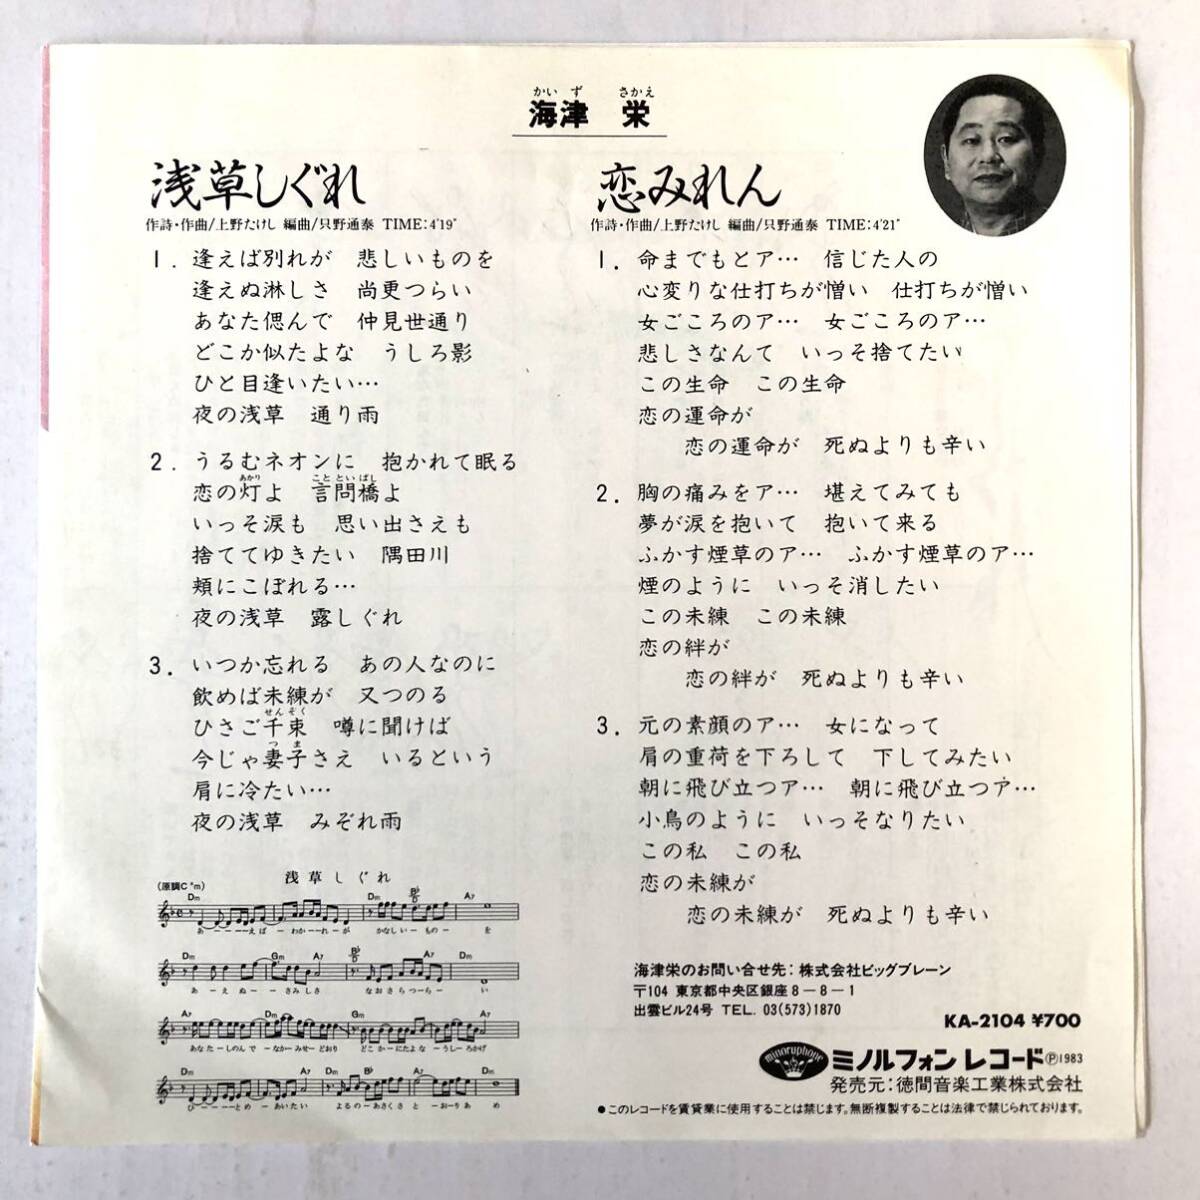 かいず さかえ
海津 栄
浅草しぐれ
作詩・作曲/上野たけし 編曲/只野通泰 TIME:4'19"
1. 逢えば別れが 悲しいものを
逢えぬ淋しさ 尚更つらい
あなた偲んで 仲見世通り
どこか似たよな うしろ影
ひと目逢いたい…
夜の浅草 通り雨
2. うるむネオンに 抱かれて眠る
あかり ことといばし
恋の灯よ 言問橋よ
いっそ涙も 思い出さえも
捨ててゆきたい 隅田川
頬にこぼれる…
夜の浅草 露しぐれ
3. いつか忘れる あの人なのに
飲めば未練が 又つのる
せんぞく
ひさご千束 噂に聞けば
つま
今じゃ妻子さえ いるという
肩に冷たい…
夜の浅草 みぞれ雨
浅草しぐれ
(原調C#m)
Dm Dm B♭ A7
あーーーえばーわかーーれが かなしいーものー を
Dm Gm A7 B♭ A7 Dm
あーえぬーーさみしさ なおさらつーらー い
A7 Dm Gm Dm
あなたーしのんでーなかーみせーどおり どこかーにたよなーうしーろかげ
A7 Dm Gm Dm A7 Dm
ひーーーーとめーあいたい よるのーあさくさ とーおりあめ
恋みれん
作詩・作曲/上野たけし 編曲/只野通泰 TIME:4'21"
1. 命までもとア… 信じた人の
心変りな仕打ちが憎い 仕打ちが憎い
女ごころのア… 女ごころのア…
悲しさなんて いっそ捨てたい
この生命 この生命
恋の運命が
恋の運命が 死ぬよりも辛い
2. 胸の痛みをア… 堪えてみても
夢が涙を抱いて 抱いて来る
ふかす煙草のア… ふかす煙草のア…
煙のように いっそ消したい
この未練 この未練
恋の絆が
恋の絆が 死ぬよりも辛い
3. 元の素顔のア… 女になって
肩の重荷を下ろして 下してみたい
朝に飛び立つア… 朝に飛び立つア…
小鳥のように いっそなりたい
この私 この私
恋の未練が
恋の未練が 死ぬよりも辛い
海津栄のお問い合せ先：株式会社ビッグブレーン
〒104 東京都中央区銀座8－8－1
出雲ビル24号 TEL. 03(573)1870
KA-2104 ¥700
minoruphone
ミノルフォン レコード Ⓟ1983
発売元：徳間音楽工業株式会社
●このレコードを賃貸業に使用することは禁じます。無断複製することは法律で禁じられております。